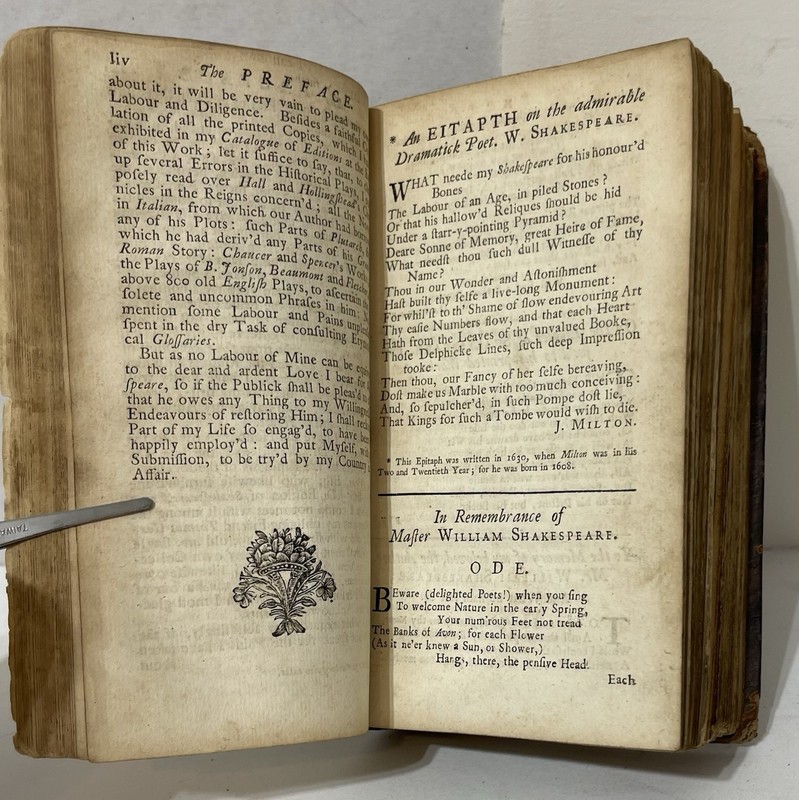 liv
The PREFACE.
about it, it will be very vain to plead my
Labour and Diligence. Beſides a faithful
lation of all the printed Copies, which I
exhibited in my Catalogue of Editions at the
of this Work; let it ſuffice to ſay, that, to
up ſeveral Errors in the Hiſtorical Plays, I
poſely read over Hall and Hollingſhead's
nicles in the Reigns concern'd; all the
in Italian, from which our Author had
any of his Plots: ſuch Parts of Plutarch,
which he had deriv'd any Parts of his
Roman Story: Chaucer and Spencer's
the Plays of B. Jonſon, Beaumont and Fletcher
above 800 old Engliſh Plays, to aſcertain the
ſolete and uncommon Phraſes in him:
mention ſome Labour and Pains
ſpent in the dry Task of conſulting
cal Gloſſaries.
But as no Labour of Mine can be
to the dear and ardent Love I bear for
ſpeare, ſo if the Publick ſhall be pleas'd to
that he owes any Thing to my
Endeavours of reſtoring Him; I ſhall
Part of my Life ſo engag'd, to have been
happily employ'd: and put Myſelf, with
Submiſſion, to be try'd by my Country
Affair.
TAIWAN
* An EITAPTH on the admirable
Dramatick Poet. W. SHAKESPEARE.
WHAT neede my Shakeſpeare for his honour'd
Bones
The Labour of an Age, in piled Stones?
Or that his hallow'd Reliques ſhould be hid
Under a ſtarr-y-pointing Pyramid?
Deare Sonne of Memory, great Heire of Fame,
What needſt thou ſuch dull Witneſſe of thy
Name?
Thou in our Wonder and Aſtoniſhment
Haſt built thy ſelfe a live-long Monument:
For whil'ſt to th' Shame of ſlow endevouring Art
Thy eaſie Numbers flow, and that each Heart
Hath from the Leaves of thy unvalued Booke,
Thoſe Delphicke Lines, ſuch deep Impreſſion
tooke:
Then thou, our Fancy of her ſelfe bereaving,
Doſt make us Marble with too much conceiving:
And, ſo ſepulcher'd, in ſuch Pompe doſt lie,
That Kings for ſuch a Tombe would wiſh to die.
J. MILTON.
* This Epitaph was written in 1630, when Milton was in his
Two and Twentieth Year; for he was born in 1608.
In Remembrance of
Maſter WILLIAM SHAKESPEARE.
ODE.
BEware (delighted Poets!) when you ſing
To welcome Nature in the early Spring,
Your num'rous Feet not tread
The Banks of Avon; for each Flower
(As it ne'er knew a Sun, or Shower,)
Hangs, there, the penſive Head.
Each